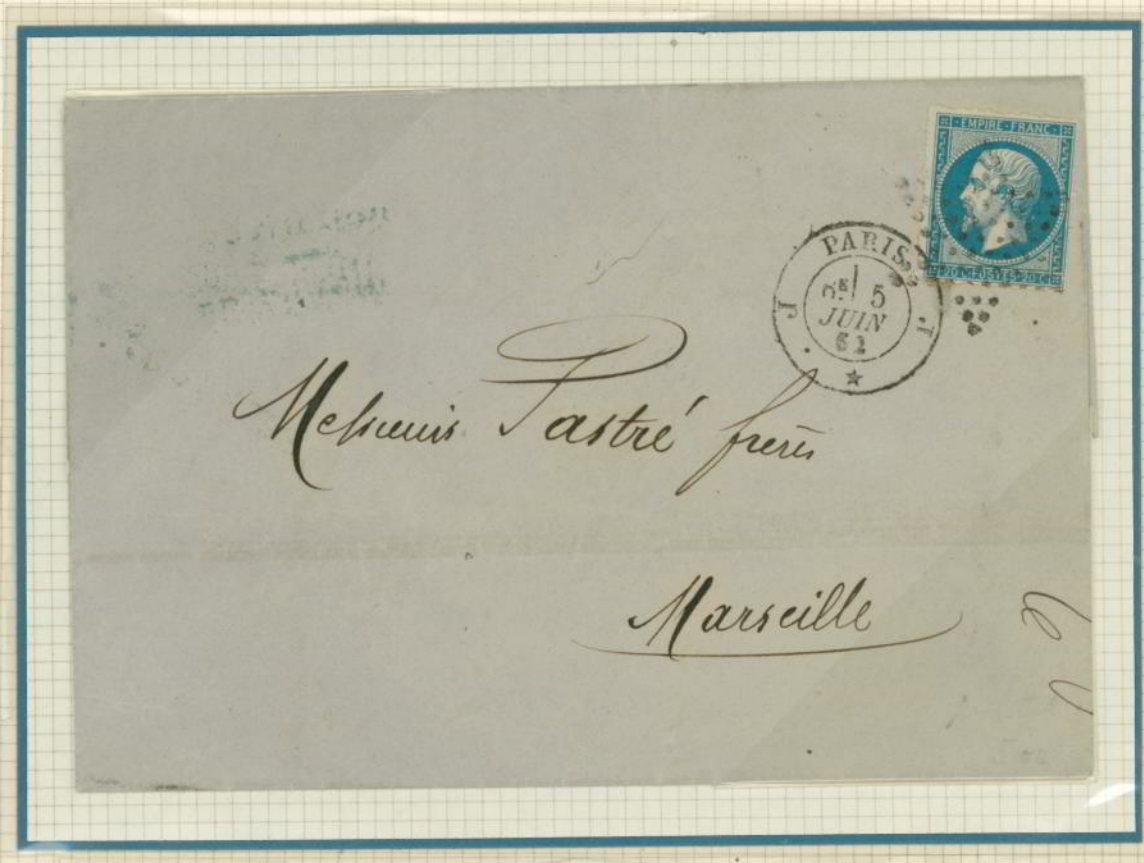 EMPIRE FRANC
20 C POSTES 20 C
PARIS
5
JUIN
62
J J
Messieurs Pastré frères
Marseille